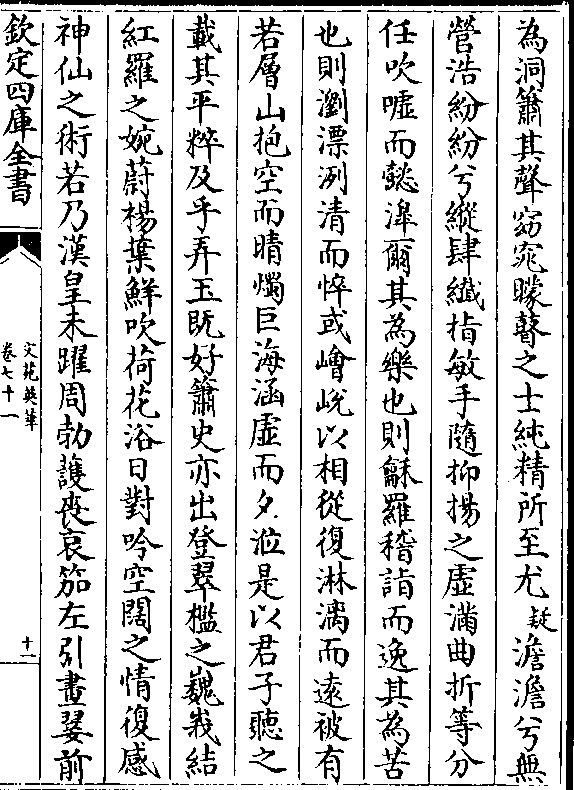 為洞簫其聲窈窕矇瞽之士純精所至尤疑澹澹兮無
營浩紛紛兮縱肆纖指敏手隨抑揚之虛滿曲折等分
任吹噓而懿濞爾其為樂也則龢羅稽詣而逸其為苦
也則瀏漂冽清而悴或嶒峵以相從復淋漓而遠被有
若層山抱空而晴燭巨海涵虛而夕涖是以君子聽之
載其平粹及乎弄玉既好簫史亦出登翠檻之巍峩結
紅羅之婉蔚楊葉鮮吹荷花浴日對吟空闊之情復感
神仙之術若乃漢皇未躍周勃護喪哀笳左引畫翣前
欽定四庫全書
文苑英華
卷七十一
十一